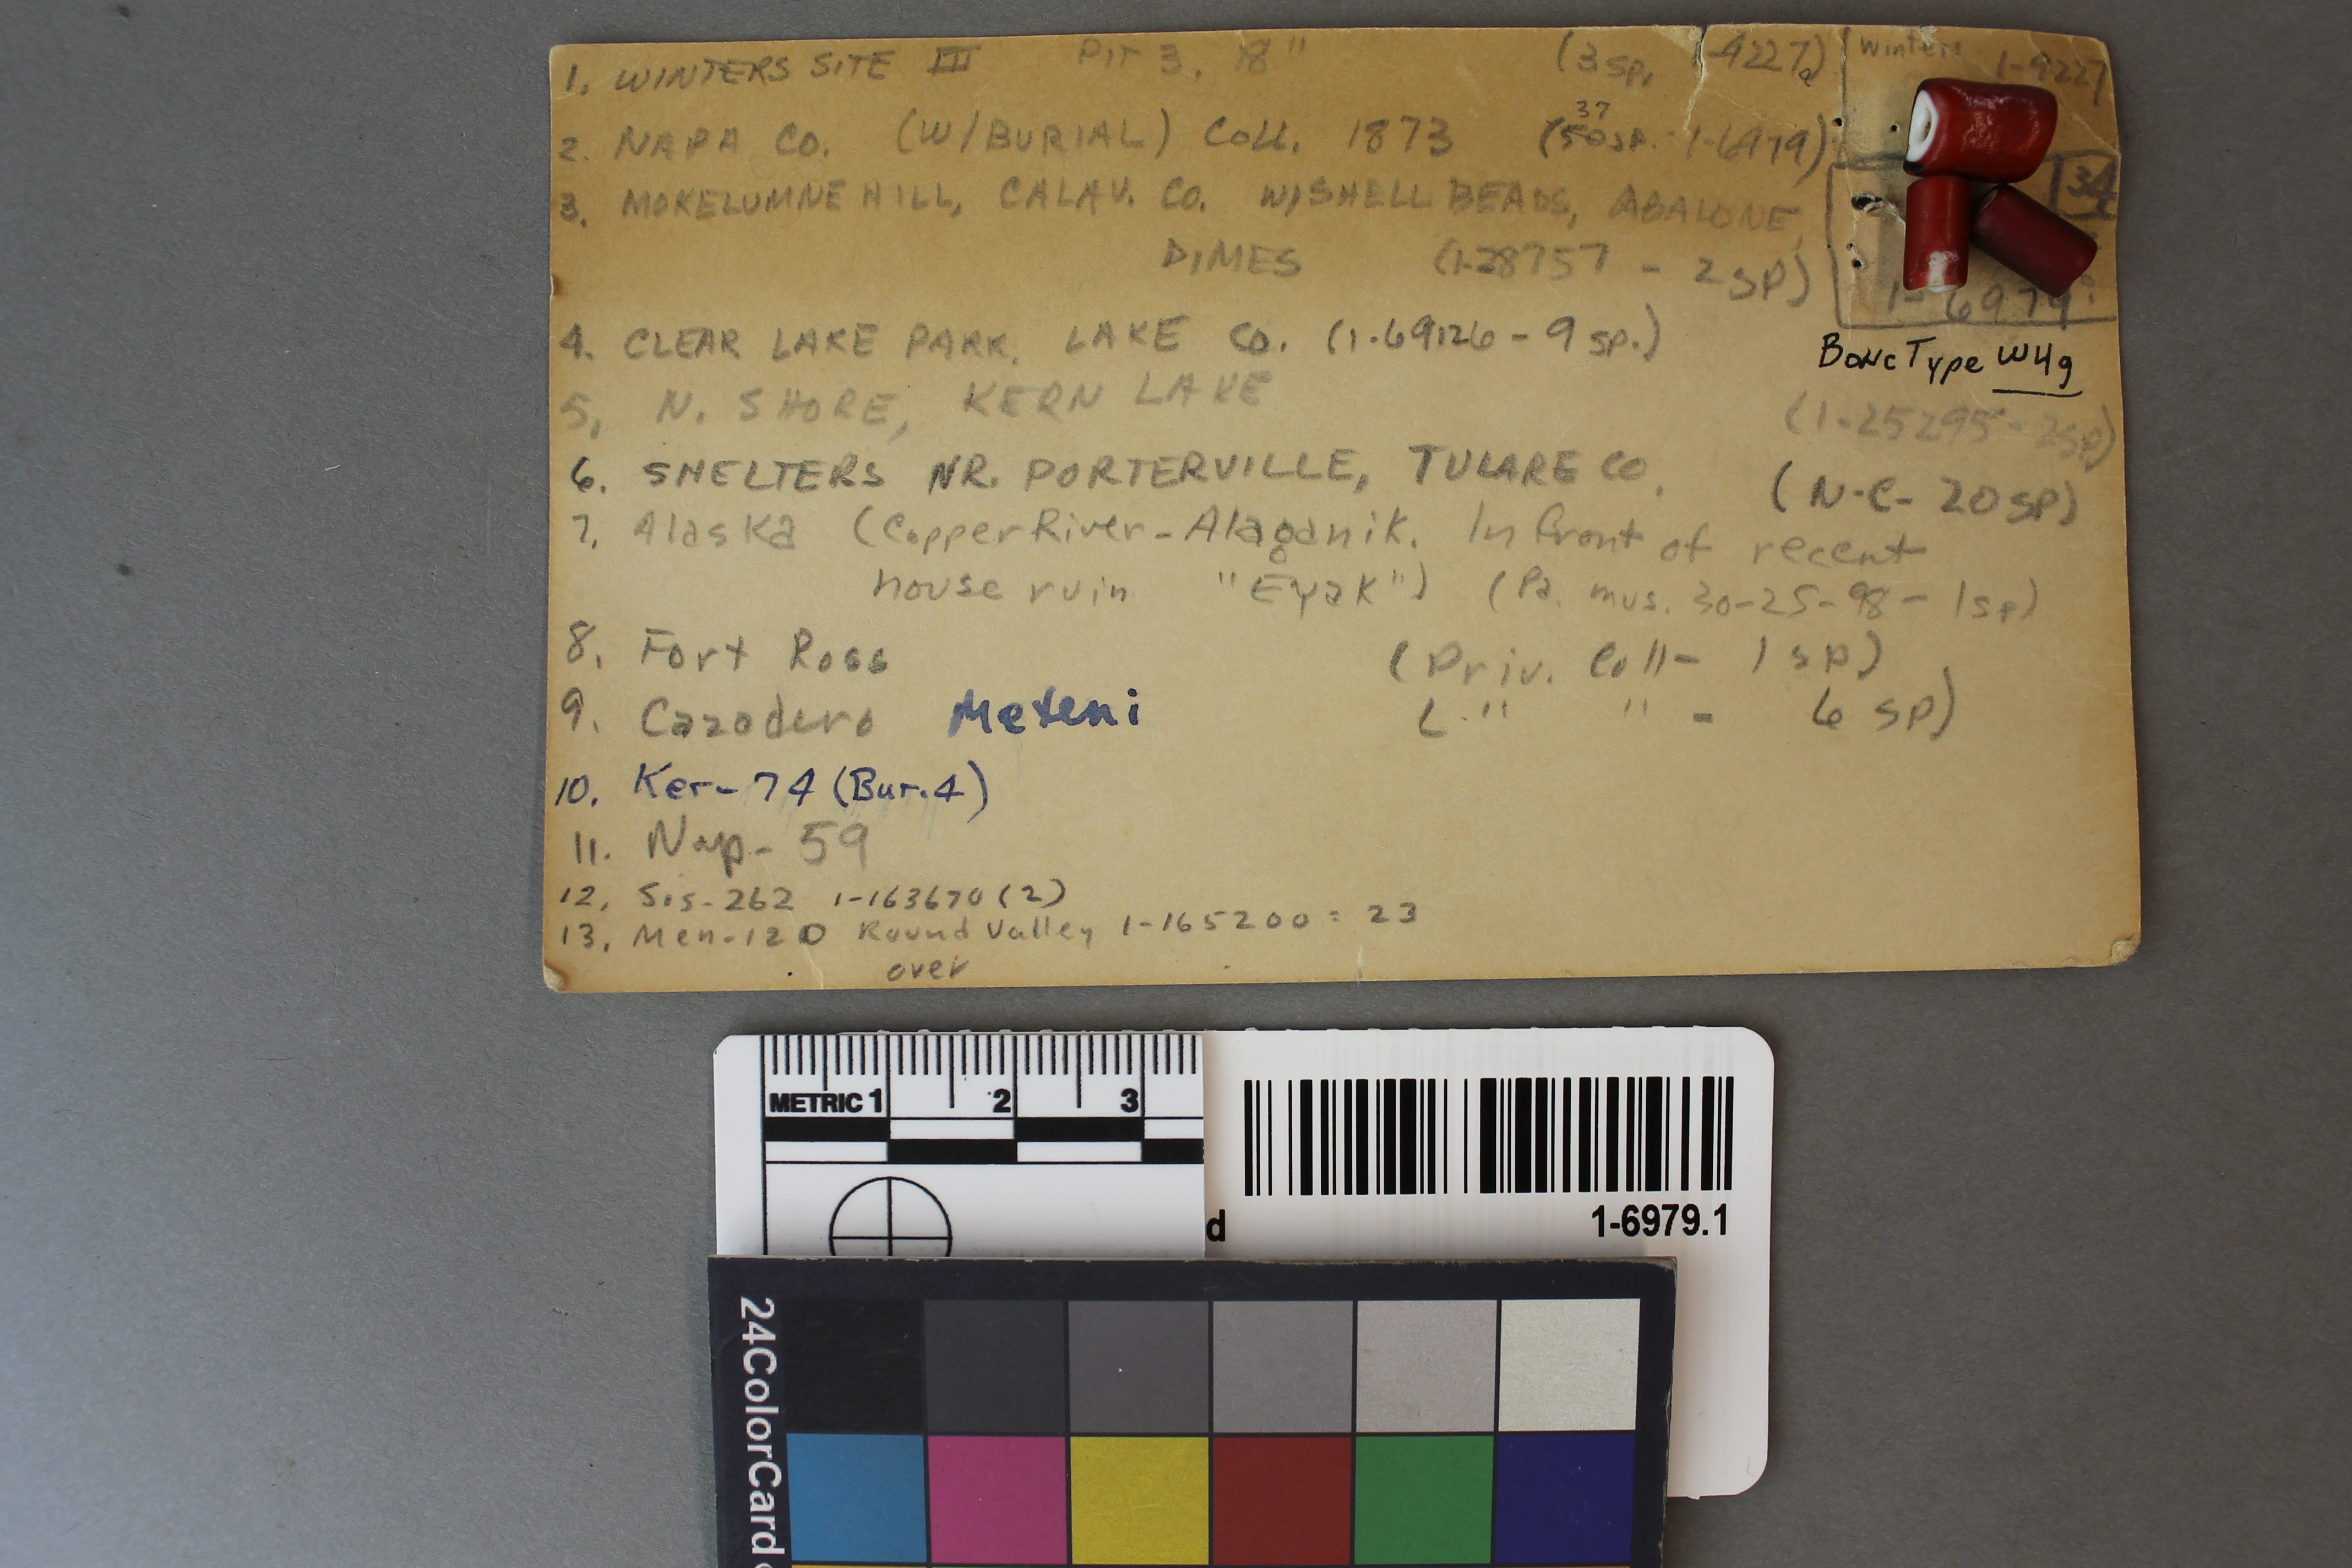 1. WINTERS SITE III PIT 3, 18" (3 sp, 1-4227a)
Winters 1-4227
2. NAPA CO. (W/BURIAL) COLL. 1873 (50 sp. 1-6979)
37
3. MOKELUMNE HILL, CALAV. CO. W/SHELL BEADS, ABALONE,
DIMES (1-28757 - 2 sp)
34
1-6979
4. CLEAR LAKE PARK, LAKE CO. (1-69126 - 9 sp.)
Bone Type W4g
5. N. SHORE, KERN LAKE (1-25295 - 2 sp)
6. SHELTERS NR. PORTERVILLE, TULARE CO. (N-C- 20 sp)
7. Alaska (Copper River-Alaganik. In front of recent
house ruin "Eyak") (Pa. mus. 30-25-98 - 1 sp)
8. Fort Ross (Priv. Coll- 1 sp)
9. Cazadero Meteni (" " - 6 sp)
10. Ker-74 (Bur.4)
11. Nap-59
12. Sis-262 1-163670 (2)
13. Men-120 Round Valley 1-165200 = 23
over
METRIC 1 2 3
d
1-6979.1
24ColorCard